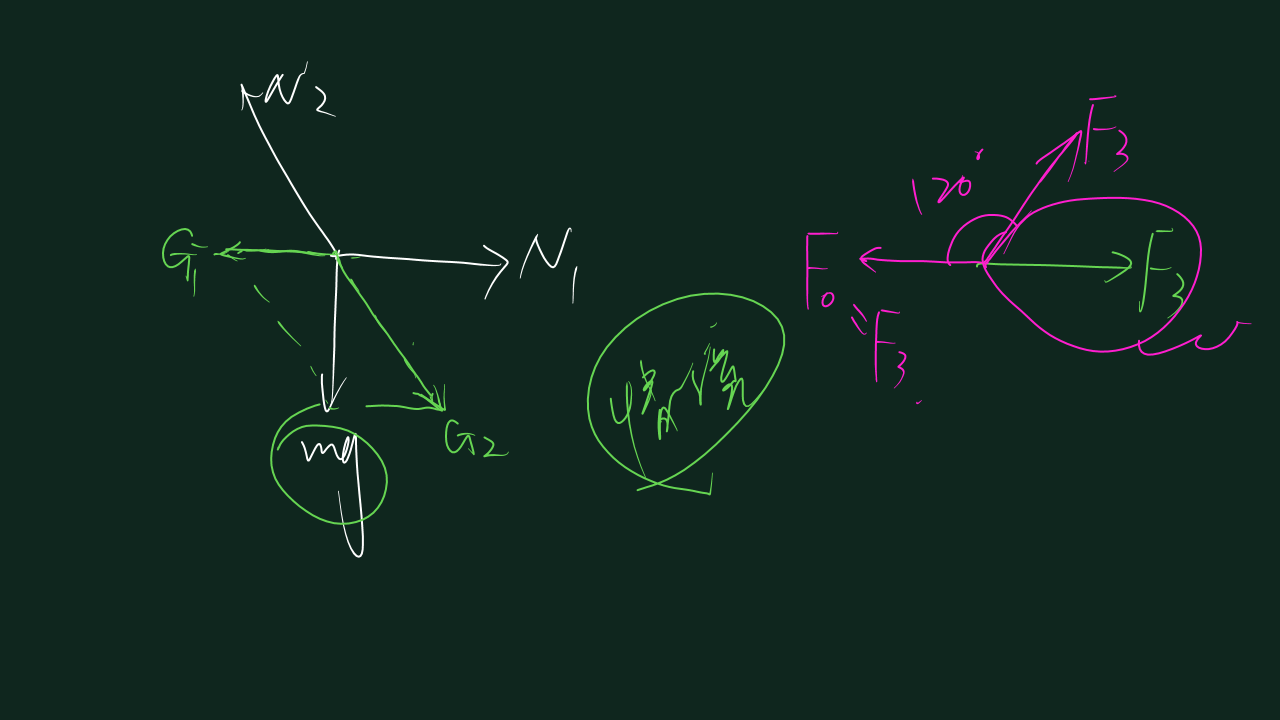 N₂
G₁
N₁
mg
G₂
120°
F₃
F₀
F₃
F₃